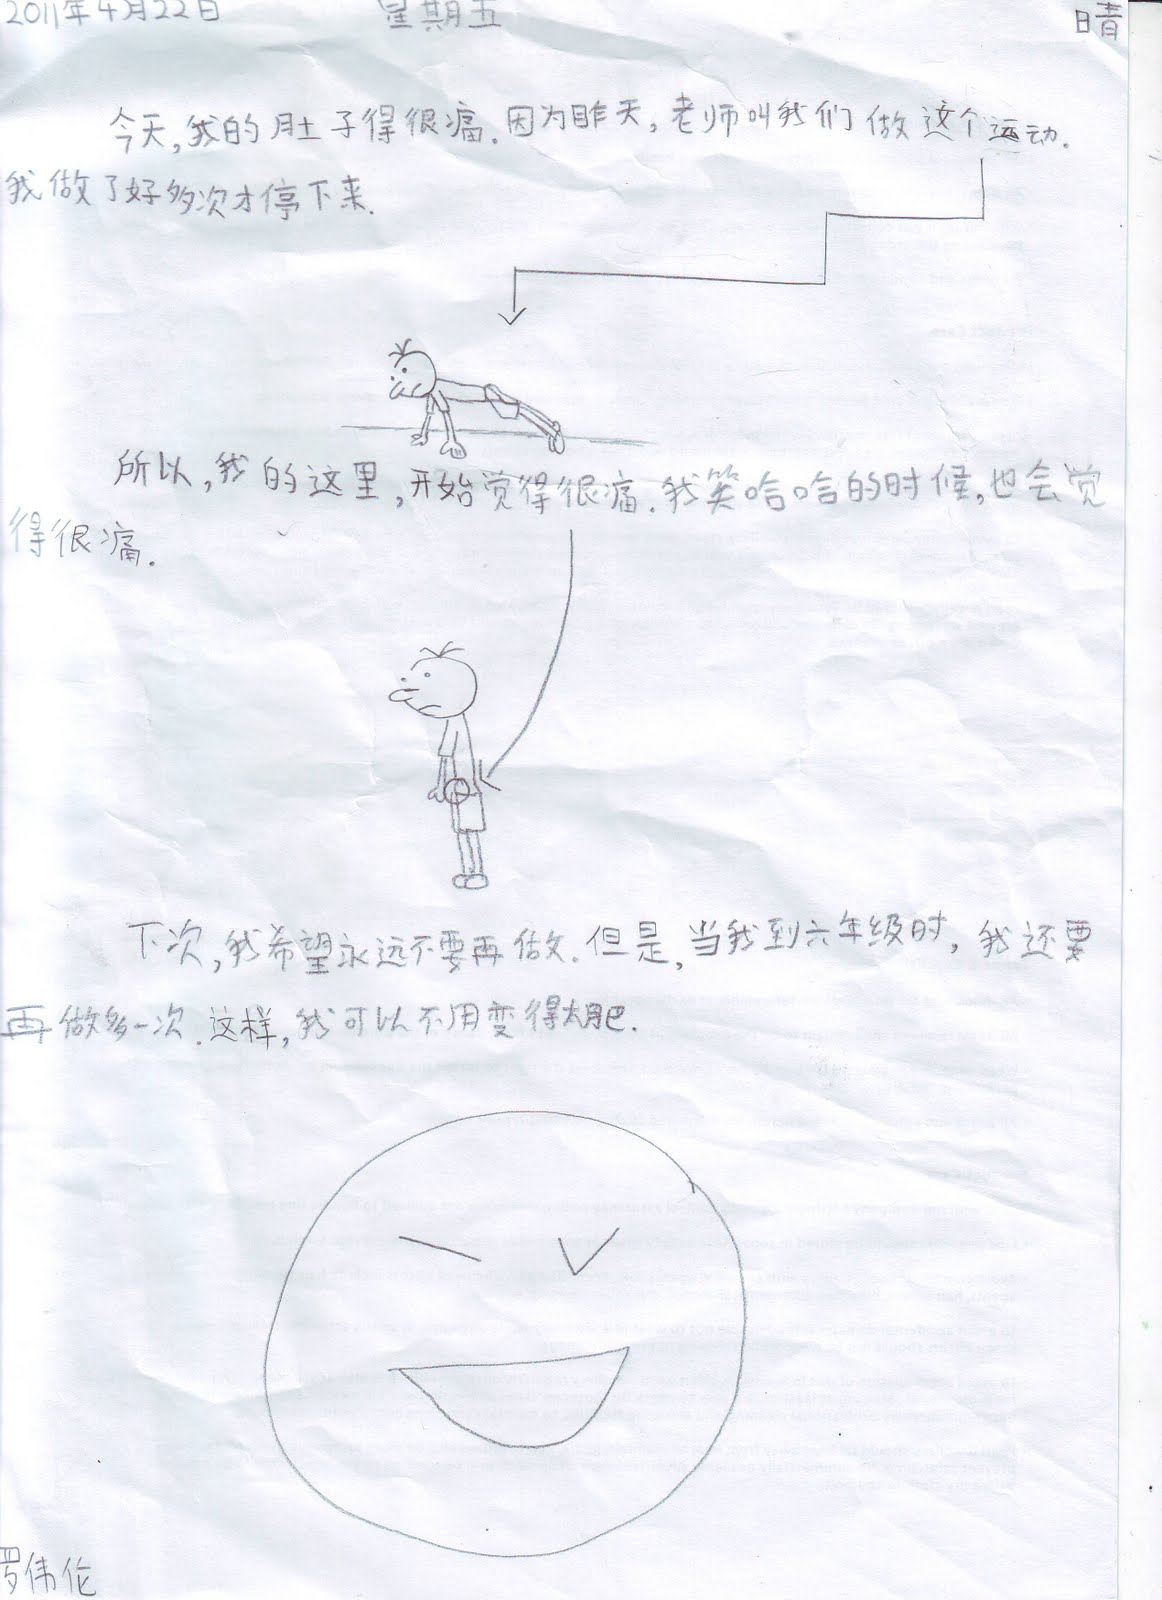 2011年4月22日 星期五 晴
今天,我的肚子得很痛.因为昨天,老师叫我们做这个运动.
我做了好多次才停下来.
所以,我的这里,开始觉得很痛.我笑哈哈的时候,也会觉
得很痛.
下次,我希望永远不要再做.但是,当我到六年级时,我还要
再做多一次.这样,我可以不用变得太肥.
罗伟伦